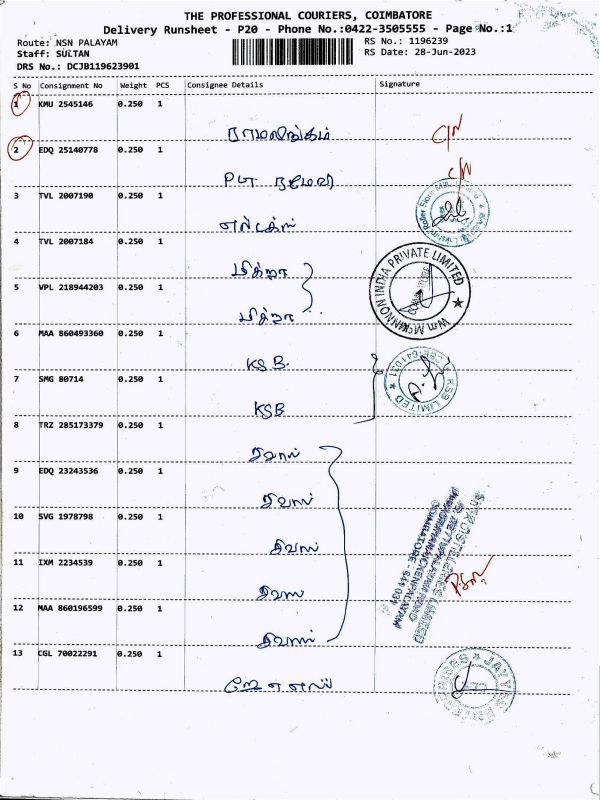 THE PROFESSIONAL COURIERS, COIMBATORE
Delivery Runsheet - P20 - Phone No.:0422-3505555 - Page No.:1
Route: NSN PALAYAM
Staff: SULTAN
DRS No.: DCJB119623901
RS No.: 1196239
RS Date: 28-Jun-2023
S No Consignment No Weight PCS Consignee Details Signature
1 KMU 2545146 0.250 1 ராமலிங்கம் C/N
2 EDQ 25140778 0.250 1 C/N
3 TVL 2007190 0.250 1
4 TVL 2007184 0.250 1 மித்ரா
5 VPL 218944203 0.250 1 மித்ரா
INDIA PRIVATE LIMITED
6 MAA 860493360 0.250 1 KSB.
7 SMG 80714 0.250 1 KSB
KSB LIMITED
CBE-641031
8 TRZ 285173379 0.250 1 சிவாஸ்
9 EDQ 23243536 0.250 1 சிவாஸ்
10 SVG 1978798 0.250 1 சிவாஸ்
11 IXM 2234539 0.250 1 சிவாஸ்
12 MAA 860196599 0.250 1 சிவாஸ்
DISTILLERIES LIMITED
COIMBATORE - 641 031
13 CGL 70022291 0.250 1